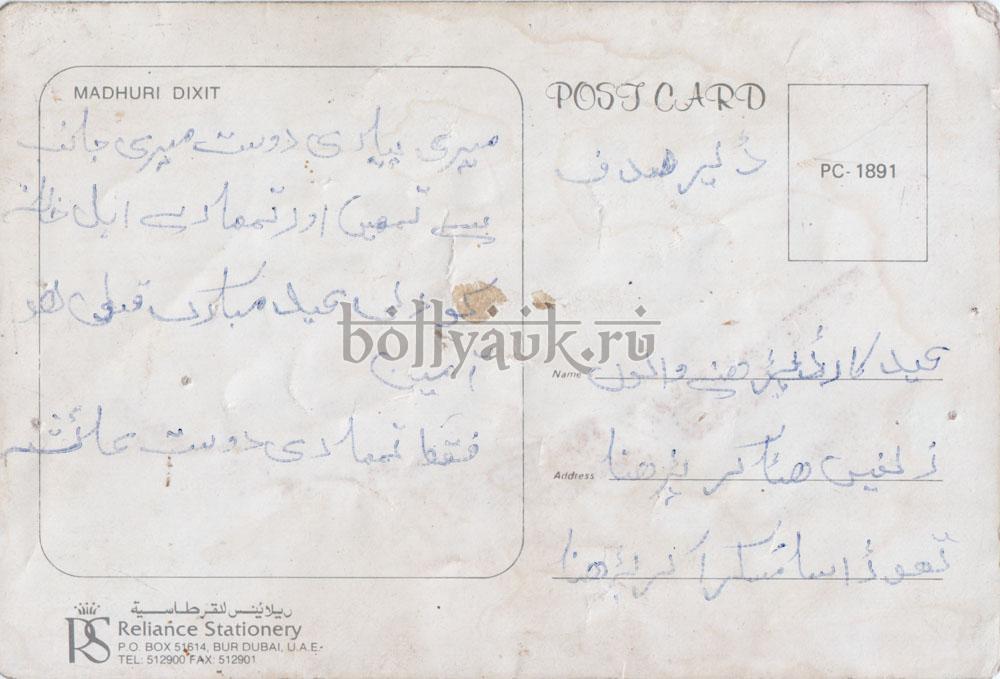 MADHURI DIXIT
میری پیاری دوست میری جانب
سے تمہیں اور تمہارے اہل خانہ
کو دلی عید مبارک قبول ہو
آمین
فقط تمہاری دوست عائشہ
POST CARD
PC-1891
ڈئیر صدف
Name عید کارڈ پڑھنے والوں
Address زلفیں ہٹا کر پڑھنا
تھوڑا سا مسکرا کر پڑھنا
bollyauk.ru
ريلاينس للقرطاسية
RS
Reliance Stationery
P.O. BOX 51614, BUR DUBAI, U.A.E-
TEL: 512900 FAX: 512901